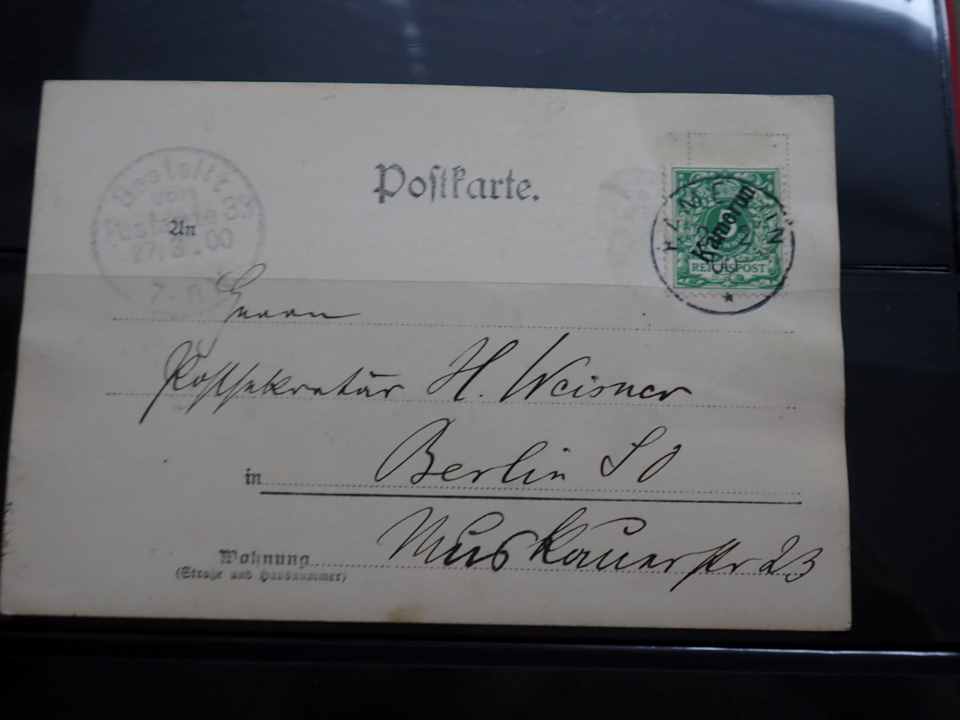 Postkarte.
Bestellt
vom
Postamte 33
27.3.00
7-8
Kamerun
REICHSPOST
An
Herrn
Postsekretär H. Weisner
in Berlin SO
Muskauerstr 23
Wohnung
(Straße und Hausnummer)